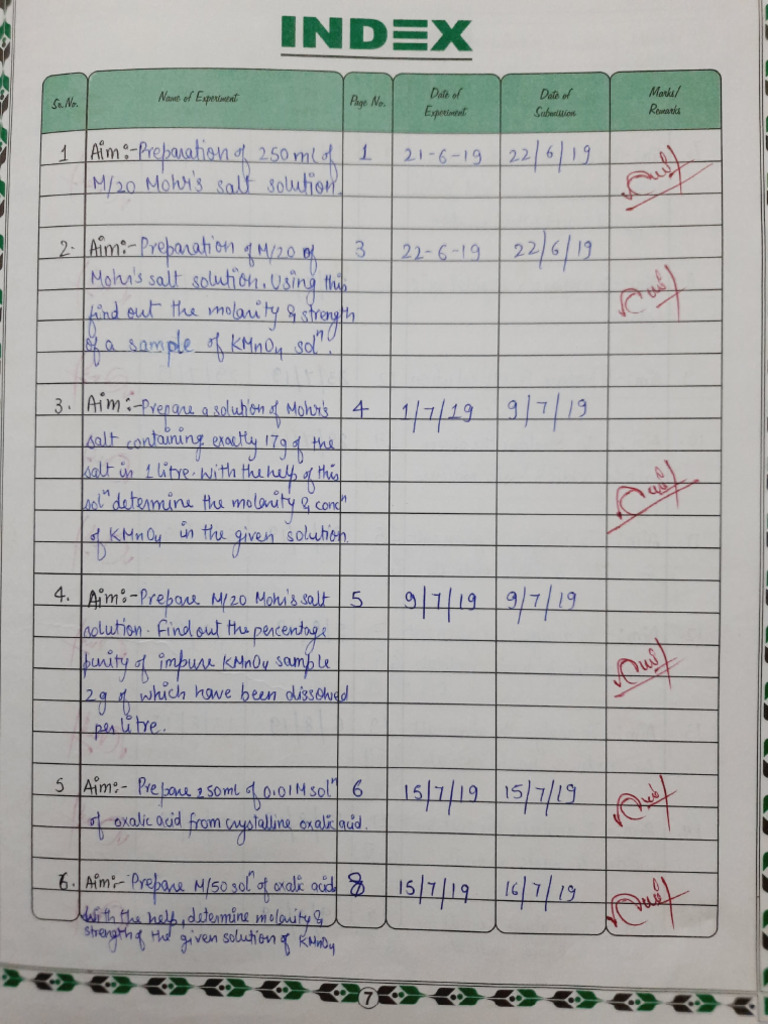 INDEX
Sr. No. Name of Experiment Page No. Date of Experiment Date of Submission Marks/ Remarks
1 Aim:- Preparation of 250 ml of 1 21-6-19 22/6/19
M/20 Mohr's salt solution.
2. Aim:- Preparation of M/20 of 3 22-6-19 22/6/19
Mohr's salt solution. Using this
find out the molarity & strength
of a sample of KMnO4 solⁿ.
3. Aim:- Prepare a solution of Mohr's 4 1/7/19 9/7/19
salt containing exactly 17g of the
salt in 1 litre. With the help of this
solⁿ determine the molarity & concⁿ
of KMnO4 in the given solution.
4. Aim:- Prepare M/20 Mohr's salt 5 9/7/19 9/7/19
solution. Find out the percentage
purity of impure KMnO4 sample
2g of which have been dissolved
per litre.
5 Aim:- Prepare 250ml of 0.01M solⁿ 6 15/7/19 15/7/19
of oxalic acid from crystalline oxalic acid.
6. Aim:- Prepare M/50 solⁿ of oxalic acid 8 15/7/19 16/7/19
with the help, determine molarity &
strength of the given solution of KMnO4
7